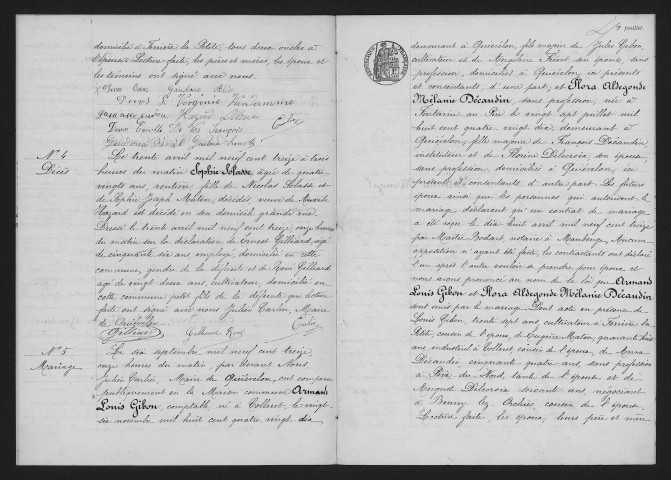 domiciliée à Ferrière la Petite, tous deux oncles à
l'épouse. Lecture faite, les pères et mères, les époux et
les témoins ont signé avec nous.
Virginie Vanamme
Hazard
Carlier
N° 4
Décès
Le trente avril mil neuf cent treize à trois
heures du matin Sophie Solasse, âgée de quatre
vingts ans, rentière, fille de Nicolas Solasse et
de Sophie Joseph Maton, décédés, veuve de
Hazard est décédée en son domicile grande rue.
Dressé le trente avril mil neuf cent treize onze heures
du matin sur la déclaration de Ernest Gilliard, âgé
de cinquante six ans, employé, domicilié en cette
commune, gendre de la défunte et de René Gilliard
âgé de vingt deux ans, cultivateur, domicilié en
cette commune petit fils de la défunte qui lecture
faite ont signé avec nous Julien Carlier, Maire
de Quiévelon
Gilliard René
N° 5
Mariage
Le six septembre mil neuf cent treize,
onze heures du matin, par devant Nous
Julien Carlier, Maire de Quiévelon, ont comparu
publiquement en la Maison commune Armand
Louis Gibon, comptable, né à Colleret, le vingt
six novembre mil huit cent quatre vingt dix
demeurant à Quiévelon, fils majeur de Jules Gibon,
cultivateur et de Angélina son épouse, sans
profession, domiciliés à Quiévelon, ici présents
et consentants, d'une part, et Flora Aldegonde
Mélanie Décaudin, sans profession, née à
Fontaine au Pire le vingt sept juillet mil
huit cent quatre vingt dix, demeurant à
Quiévelon, fille majeure de François Décaudin,
instituteur et de Florine Delacroix, son épouse,
sans profession, domiciliés à Quiévelon, ici
présents et consentants d'autre part. Les futurs
époux ainsi que les personnes qui autorisent le
mariage déclarent qu'un contrat de mariage
a été reçu le dix huit avril mil neuf cent treize
par Maître Bodart, notaire à Maubeuge. Aucune
opposition n'ayant été faite, les contractants ont déclaré
l'un après l'autre vouloir se prendre pour époux et
nous avons prononcé au nom de la loi que Armand
Louis Gibon et Flora Aldegonde Mélanie Décaudin
sont unis par le mariage. Dont acte en présence de
Louis Gibon, trente sept ans, cultivateur à Ferrière la
Petite, cousin de l'époux, de Eugène Maton, quarante huit
ans, industriel à Colleret, cousin de l'époux, de
Décaudin cinquante quatre ans, sans profession
à du Nord, tante de l'épouse et de
August Delacroix soixante ans, négociant
à Beuvry lez Orchies, cousin de l'épouse.
Lecture faite, les époux, leurs père et mère